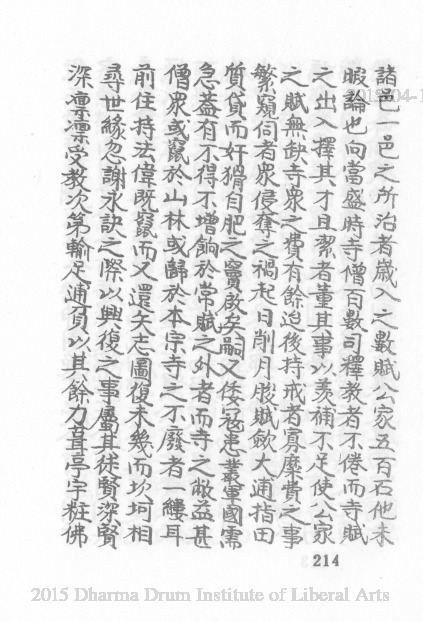 諸邑一邑之所治者歲入之數賦公家五百石他未
暇論也向當盛時寺僧百數司釋教者不倦而寺賦
之出入擇其才且潔者董其事以羨補不足使公家
之賦無缺寺衆之費有餘迨後持戒者寡靡費之事
繁窺伺者衆侵奪之禍起日削月朘賦斂大逋指田
質貸而奸猾自肥之竇啟矣嗣又倭寇患叢軍國需
急葢有不得不增餉於常賦之外者而寺之敝益甚
僧衆或竄於山林或歸於本宗寺之不廢者一縷耳
前住持法偉既竄而又還矢志圖復未幾而坎坷相
尋世緣忽謝永訣之際以興復之事屬其徒賢深賢
深凛凛受教次第輸足逋負以其餘力葺亭宇粧佛
214
2015 Dharma Drum Institute of Liberal Arts